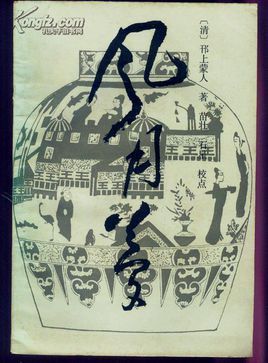 Kongfz.com
孔夫子旧书网
〔清〕邗上蒙人 著 校点
风月夢